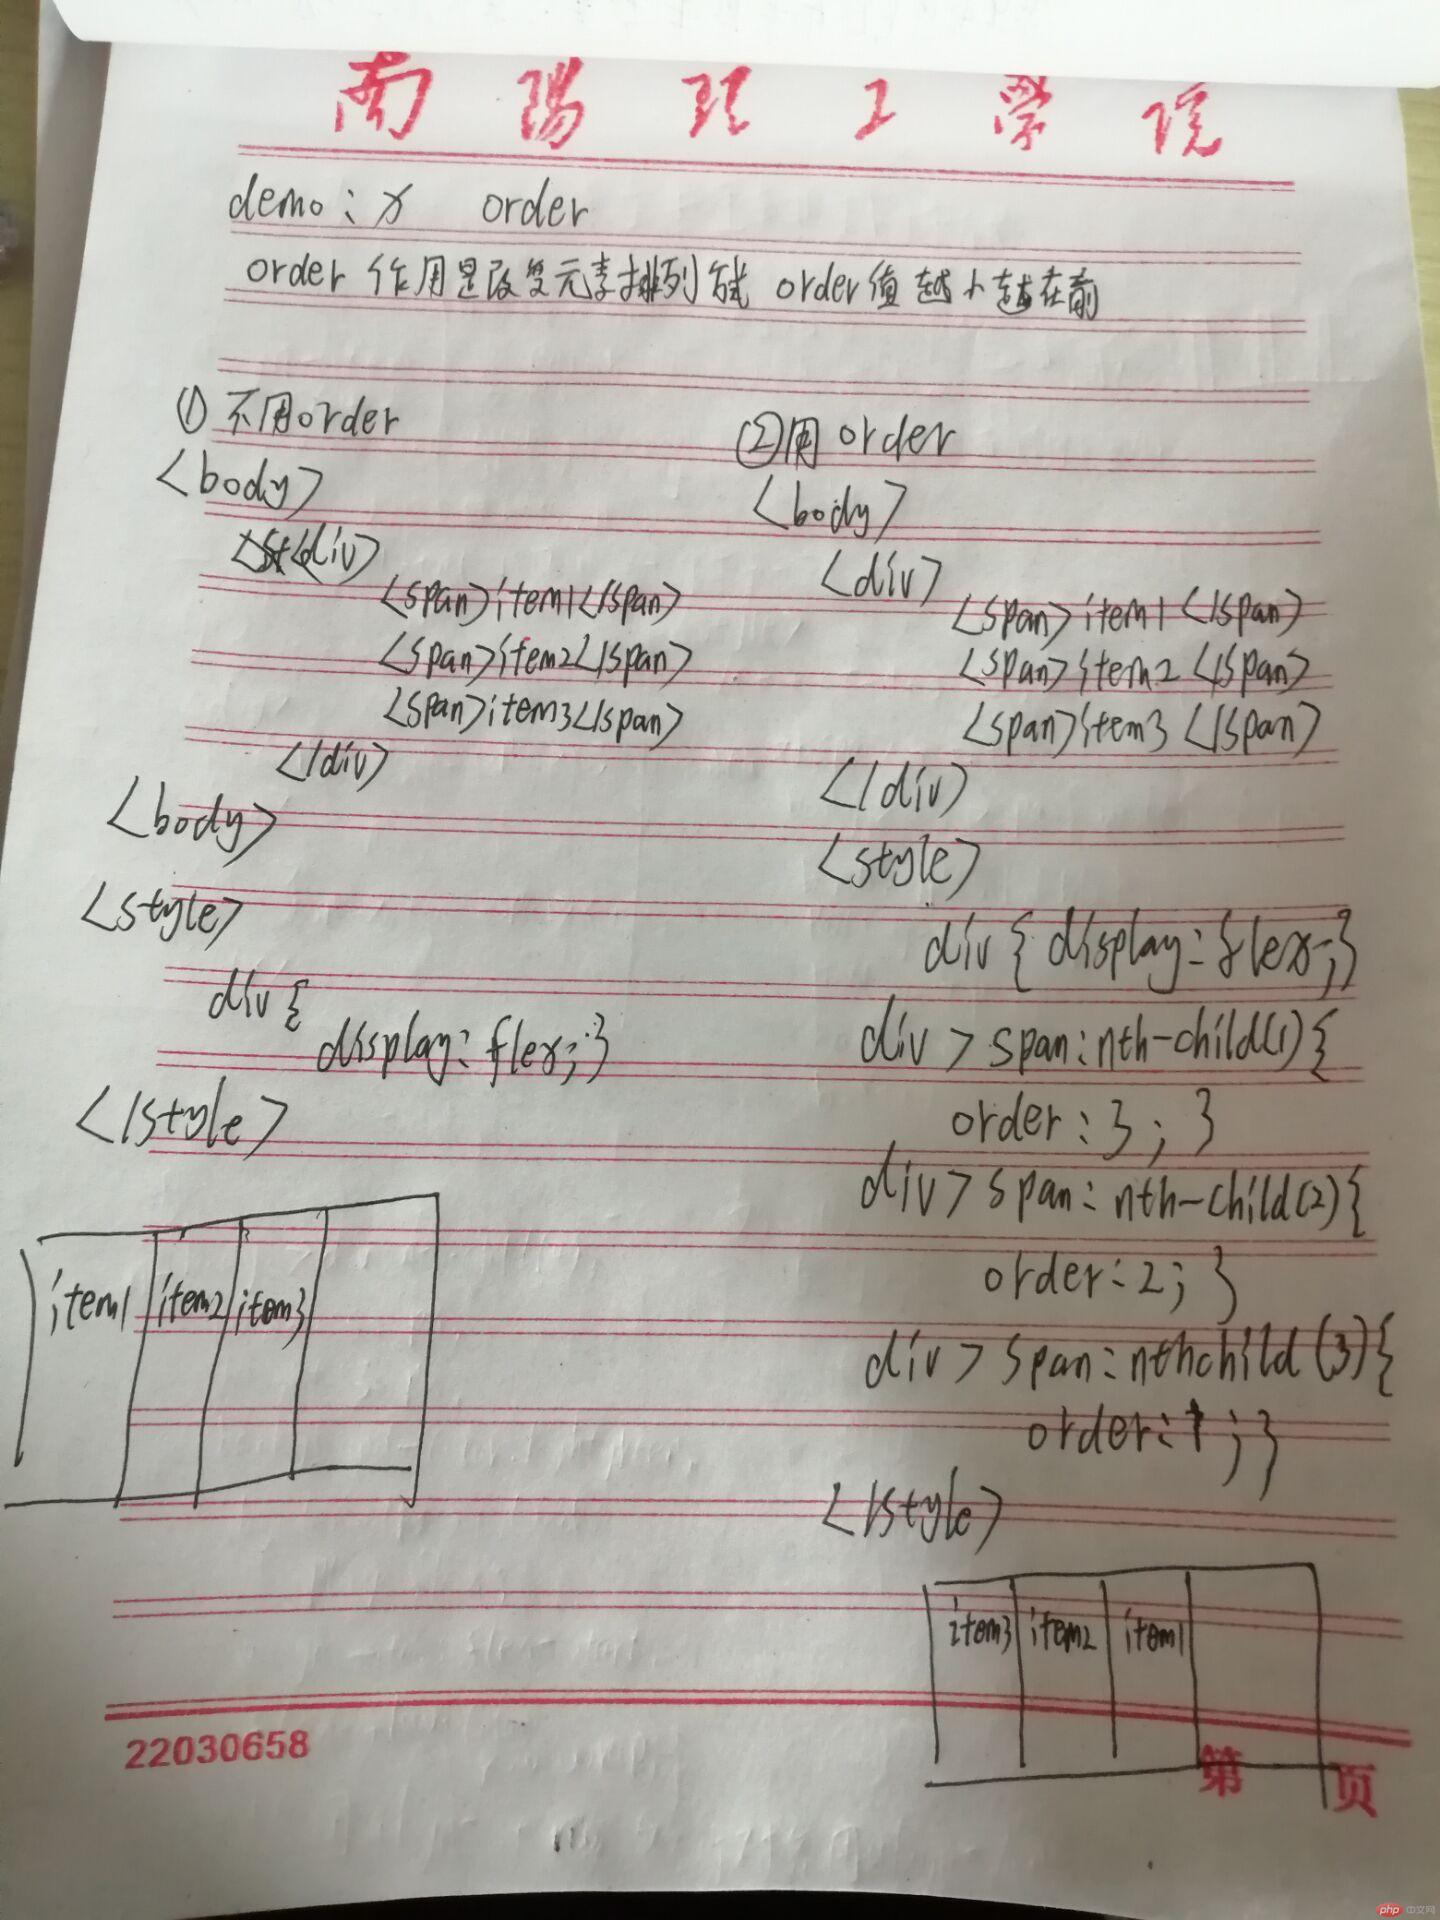 南陽理工學院
demo: 8 order
order 作用是改变元素排列方式 order值越小越在前
① 不用order
<body>
<div>
<span>item1</span>
<span>item2</span>
<span>item3</span>
</div>
<body>
<style>
div {
display: flex; }
</style>
item1 item2 item3
② 用 order
<body>
<div>
<span>item1</span>
<span>item2</span>
<span>item3</span>
</div>
<style>
div { display: flex; }
div > span:nth-child(1) {
order: 3; }
div > span: nth-child(2) {
order: 2; }
div > span: nthchild (3) {
order: 1; }
</style>
item3 item2 item1
22030658
第 页
php 中文网